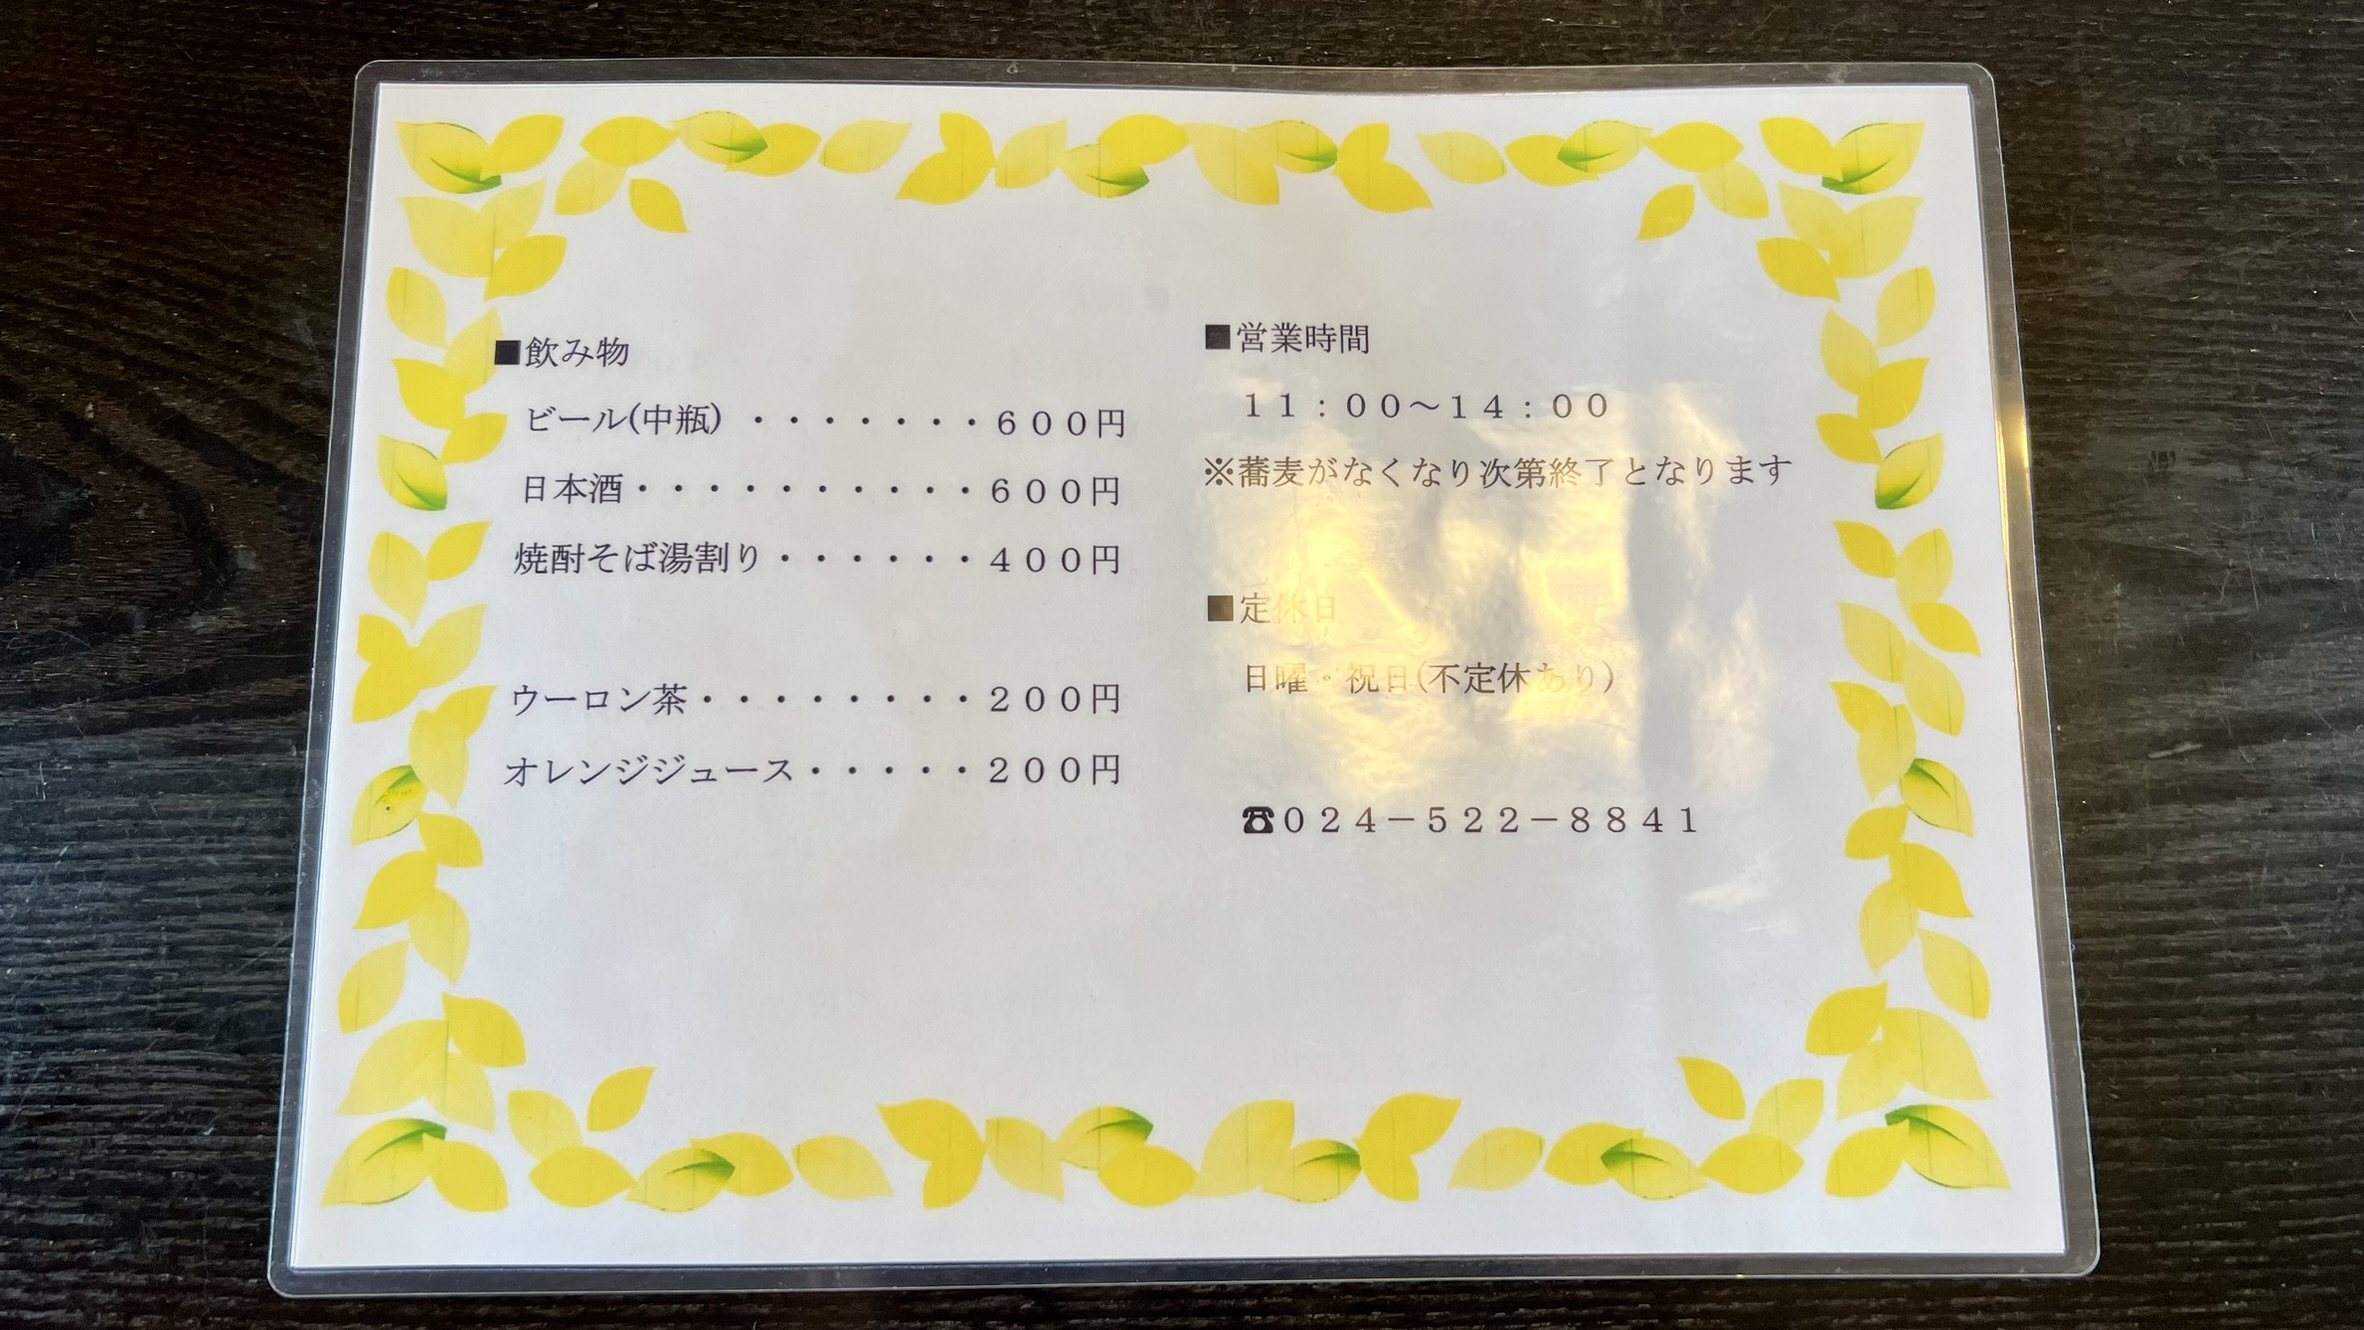 ■飲み物
ビール(中瓶) ・・・・・・・６００円
日本酒・・・・・・・・・・６００円
焼酎そば湯割り・・・・・・４００円
ウーロン茶・・・・・・・・２００円
オレンジジュース・・・・・２００円
■営業時間
１１：００～１４：００
※蕎麦がなくなり次第終了となります
■定休日
日曜・祝日(不定休あり)
☎０２４－５２２－８８４１